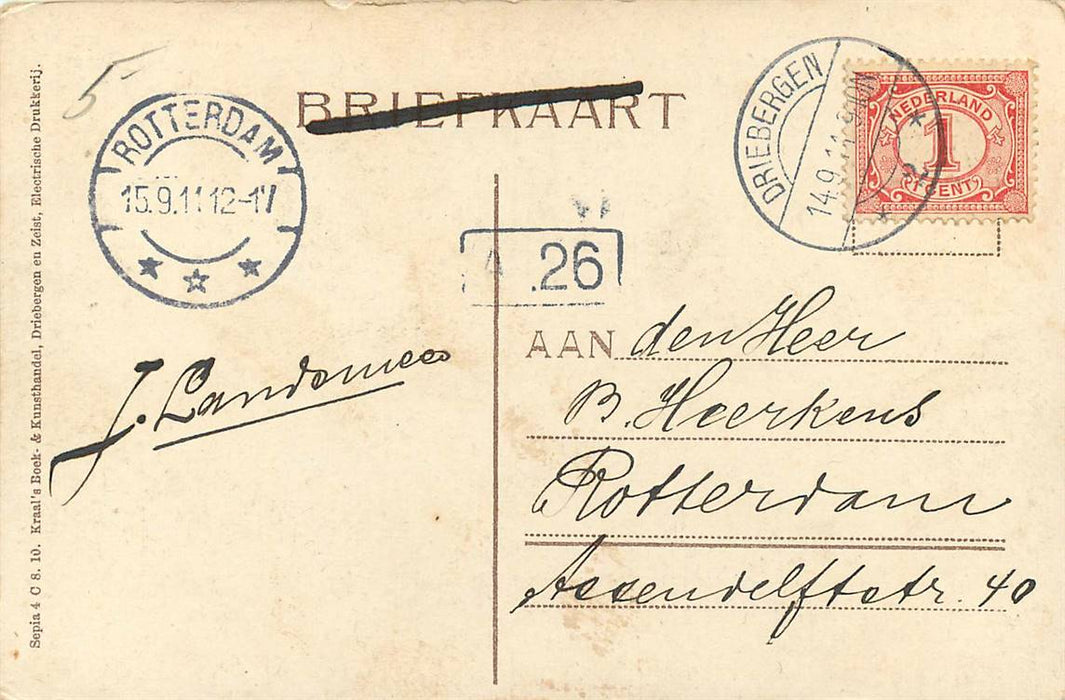 Sepia 4 C 8. 10. Kraal's Boek- & Kunsthandel, Driebergen en Zeist, Electrische Drukkerij.
5-
ROTTERDAM
15.9.11 12-1V
BRIEFKAART
DRIEBERGEN
14.9.11
2
NEDERLAND
1
CENT
A .26
J. Landsmeer
AAN den Heer
B. Heerkens
Rotterdam
Assendelftstr. 40